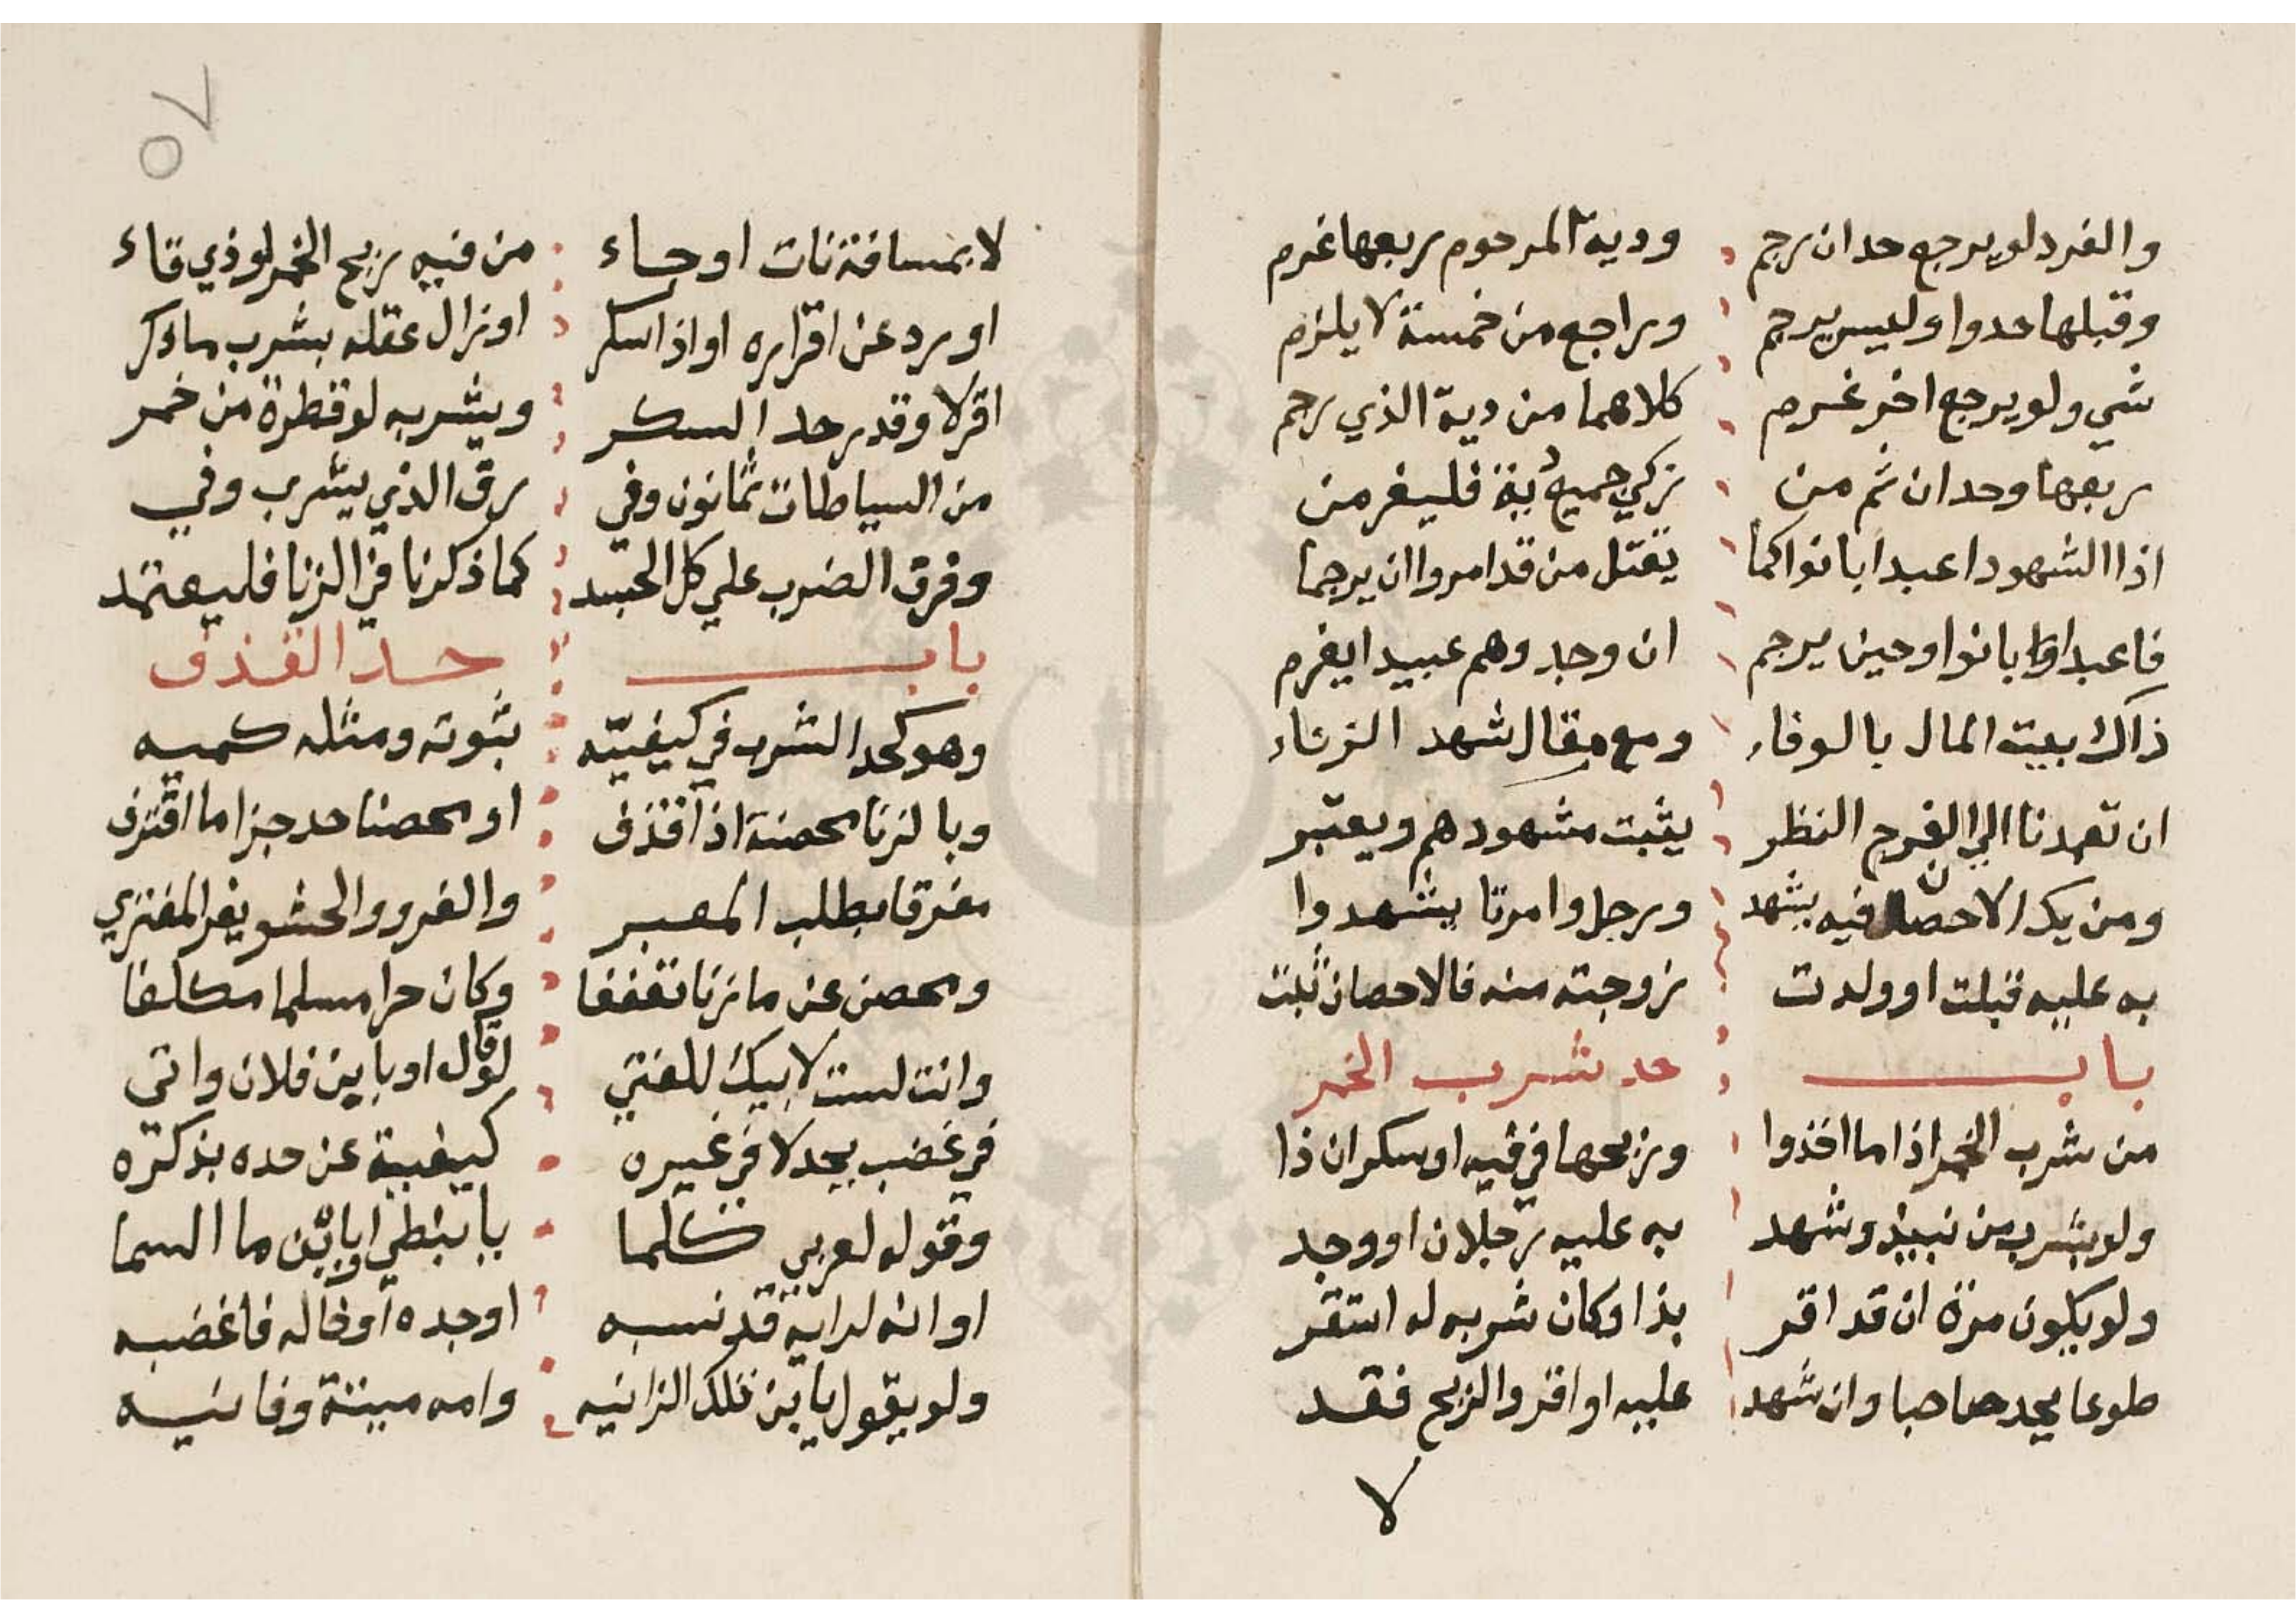 والفرد لو يرجع حد ان رجم ودية المرحوم ربعها غرم
وقبلها حدوا وليس يرجم وراجع من خمسة لا يلزم
شي ولو يرجع اخر غرم كلاهما من دية الذي رجم
ربعها وحدان ثم من زكي فليغرمن
اذا الشهود اعبدا بانوا كما يقتل من قد امروا ان يرجما
فاعبدا بانوا وحين يرجم ان وجد وهم عبيدا يغرم
ذاك ببيت المال بالوفاء ومع مقال شهد الزناء
ان تعمدنا الي الفرج النظر يثبت مشهودهم ويعتبر
ومن يك الاحصان فيه يشهد ورجل وامرتا يشهدوا
به عليه قبلت او ولدت زوجته منه فالاحصان ثبت
باب حد شرب الخمر
من شرب الخمر اذا ما اخذوا وريحها في فيه او سكران ذا
ولو بشرب من نبيذ وشهد به عليه رجلان او وجد
ولو يكون مرة ان قد اقر بذا وكان شربه له استقر
طوعا يحد صاحيا وان شهد عليه او اقر والريح فقد
لا
٥٧
لا بمسافة نات او جاء من فيه ريح الخمر لو ذي قاء
او رد عن اقراره او اذا سكر او زال عقله بشرب ما ذكر
اقر لا وقدر حد السكر وبشربه لو قطرة من خمر
من السياطات ثمانون وفي رق الذي يشرب وفي
وفرق الضرب علي كل الجسد كما ذكرنا في الزنا فليعتمد
باب حد القذف
وهو كحد الشرب في كيفيته ثبوته ومثله كميه
وبالزنا محصنة اذا قذف او محصنا حد جزا ما اقترف
مفرقا بطلب المعبر والفرو والحشو يفر المفتري
ومحصن عن ما زنا تعففا وكان حرا مسلما مكلفا
وانت لست لابيك للفتي قال او يا بن فلان واتي
في غضب يحد لا في غيره كيفية عن حده بذكره
وقوله لعربي كلما يا نبطي او يا بن ما السما
او انه لرابه قد نسبه او جده او خاله فاغضبه
ولو يقول يا بن تلك الزانيه وامه ميتة وفانيه